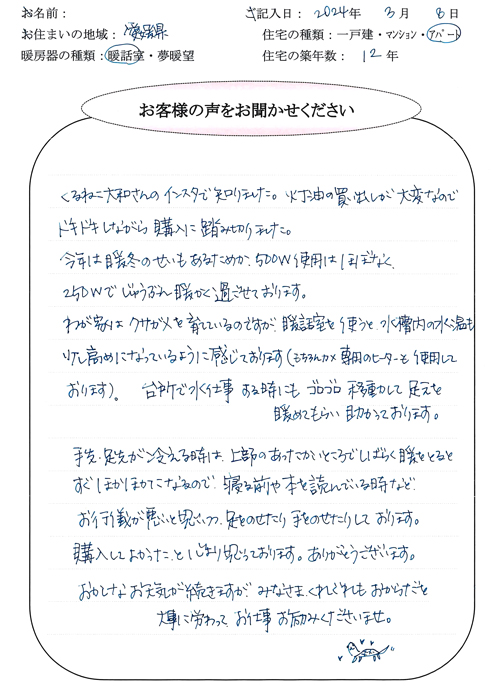 お名前：
ご記入日： 2024年 3月 8日
お住まいの地域： 愛媛県
住宅の種類：一戸建・マンション・アパート
暖房器の種類：暖話室・夢暖望
住宅の築年数： 12年
お客様の声をお聞かせください
くるねこ大和さんのインスタで知りました。灯油の買い出しが大変なので
ドキドキしながら購入に踏み切りました。
今年は暖冬のせいもあるためか、500W使用はほぼなく、
250Wでじゅうぶん暖かく過ごせております。
わが家はクサガメを育てているのですが、暖話室を使うと、水槽内の水温も
少し高めになっているように感じております（もちろんカメ専用のヒーターも使用して
おります）。 台所で水仕事する時にもゴロゴロ移動して足元を
暖めてもらい助かっております。
手先、足先が冷える時は、上部のあったかいところでしばらく暖をとると
すぐほかほかになるので、寝る前や本を読んでいる時など、
お行儀が悪いと思いつつ、足をのせたり手をのせたりしております。
購入してよかった、と心より思っております。ありがとうございます。
おかしなお天気が続きますが、みなさま、くれぐれもおからだを
大事に労わって、お仕事お励みくださいませ。